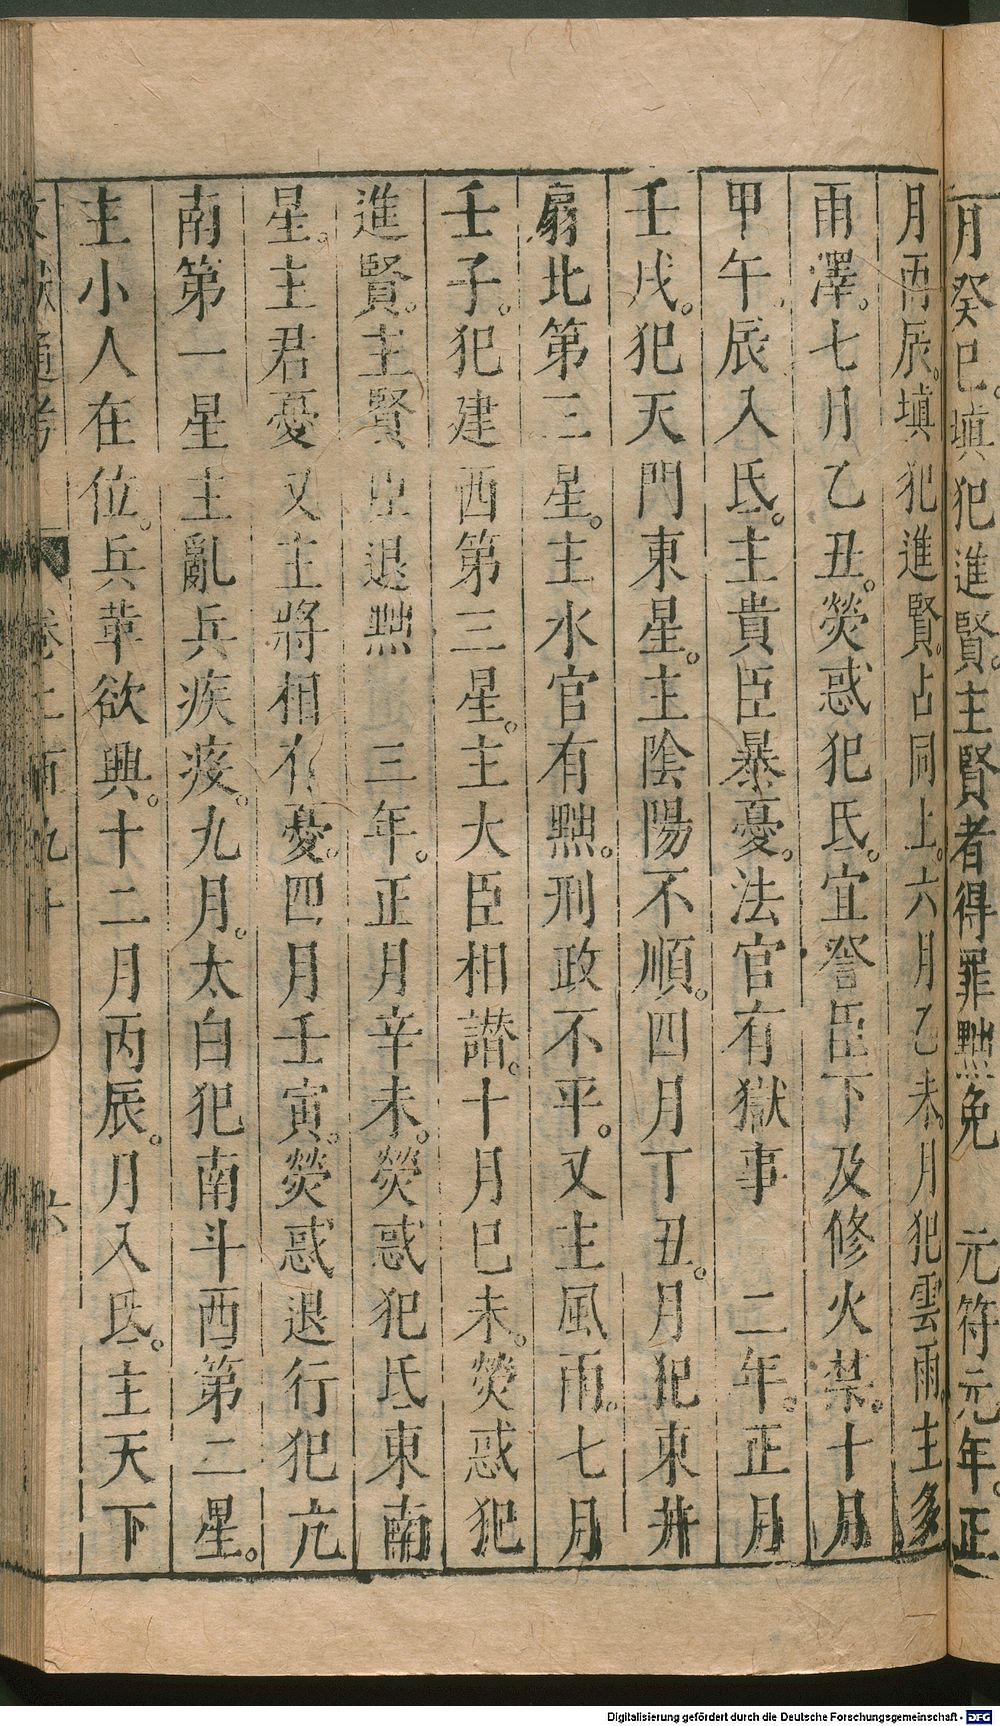 月癸巳。填犯進賢。主賢者得罪黜免　元符元年。正
月丙辰。填犯進賢。占同上。六月乙未。月犯雲雨。主多
雨澤。七月乙丑。熒惑犯氐。宜詧臣下及修火禁。十月
甲午。辰入氐。主貴臣暴憂。法官有獄事　二年。正月
壬戌。犯天門東星。主陰陽不順。四月丁丑。月犯東井
扇北第三星。主水官有黜。刑政不平。又主風雨。七月
壬子。犯建西第三星。主大臣相譖。十月巳未。熒惑犯
進賢。主賢臣退黜　三年。正月辛未。熒惑犯氐東南
星。主君憂又主將相有憂。四月壬寅。熒惑退行犯亢
南第一星主亂兵疾疫。九月。太白犯南斗西第二星。
主小人在位。兵革欲興。十二月丙辰。月入氐。主天下
文獻通考　卷二百九十　六
Digitalisierung gefördert durch die Deutsche Forschungsgemeinschaft - DFG